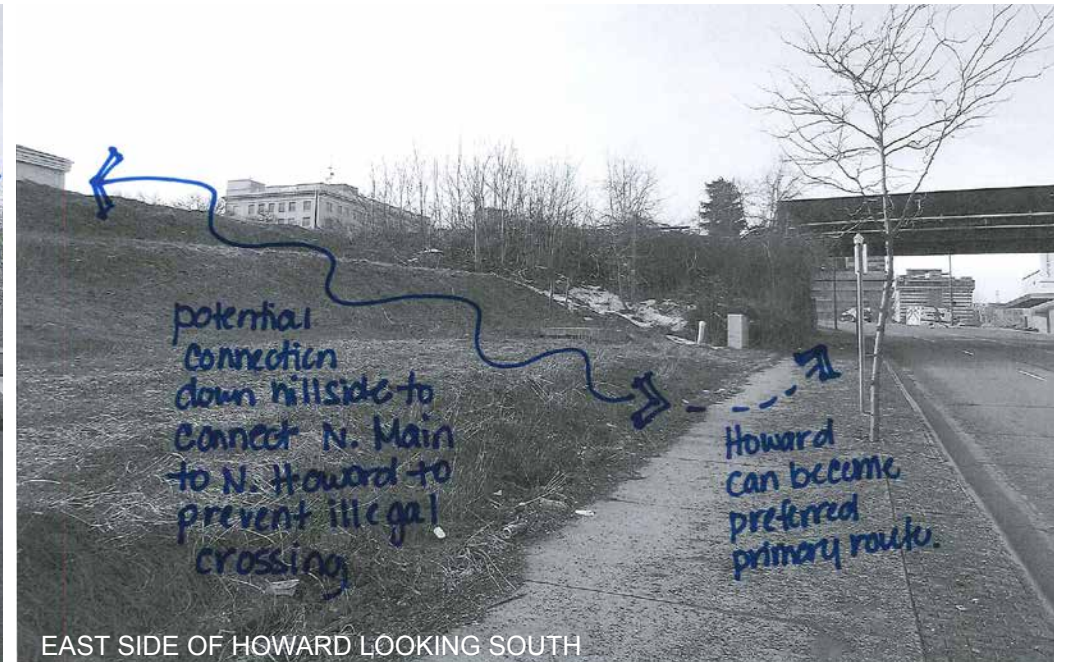 potential
connection
down hillside to
connect N. Main
to N. Howard to
prevent illegal
crossing
Howard
can become
preferred
primary route.
EAST SIDE OF HOWARD LOOKING SOUTH